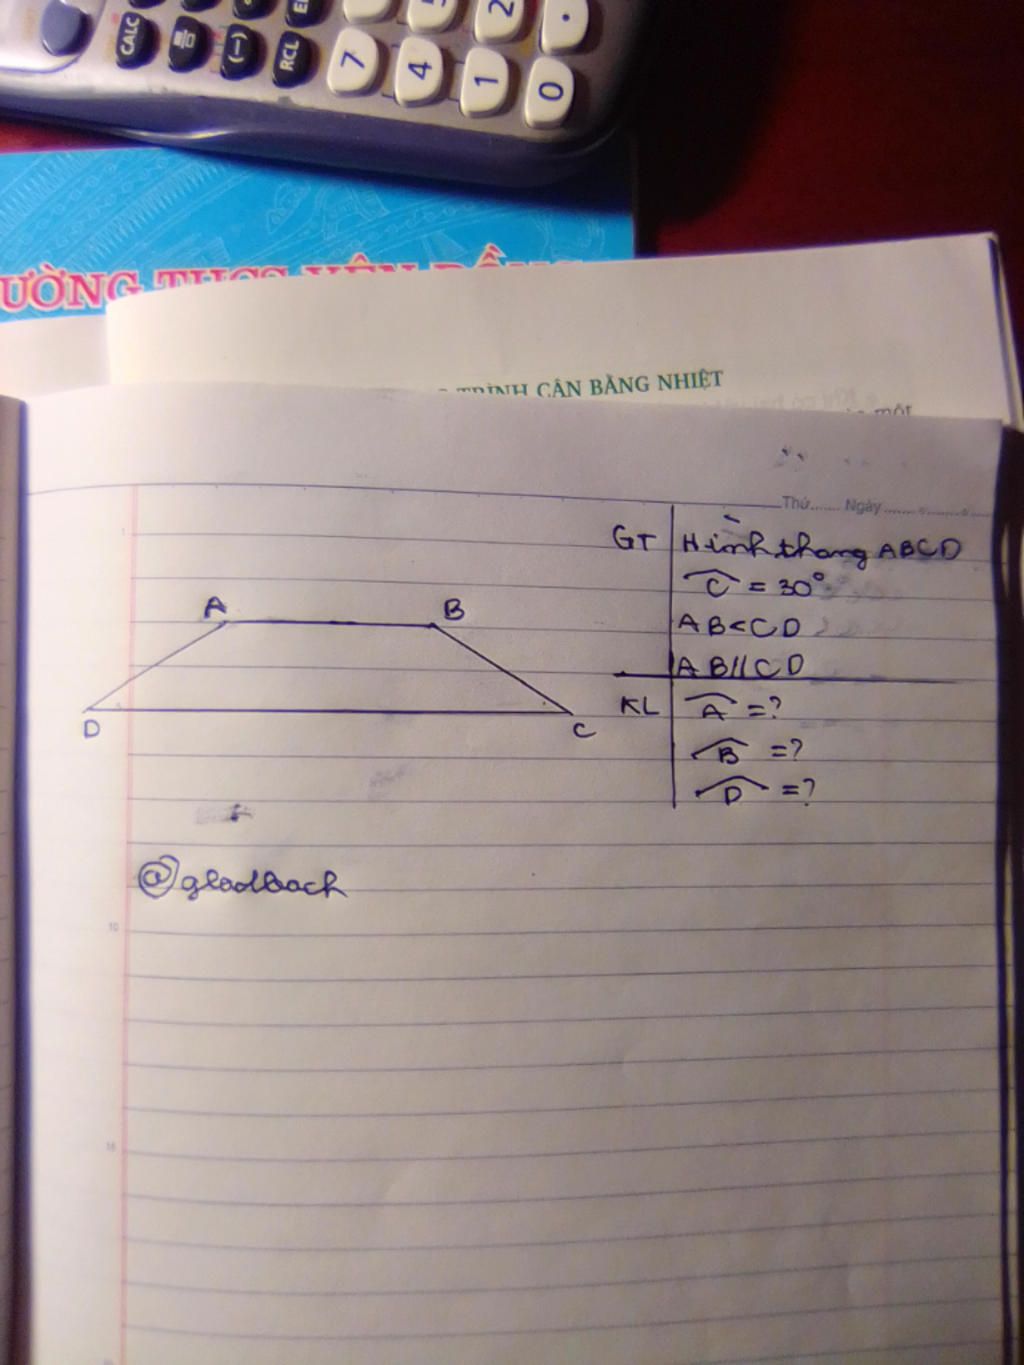 CALC
(-)
RCL
7
4
1
0
2
.
ƯỜNG THCS YÊN
TRÌNH CÂN BẰNG NHIỆT
một
Thứ...... Ngày
GT Hình thang ABCD
C = 30°
AB<CD
AB//CD
KL A =?
B =?
D =?
A B
D C
@gladbach
10